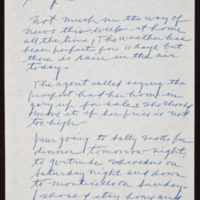 Not much in the way of
news this week - at home
all the time. The weather has
been perfect for 10 days but
there is rain in the air
today.
The agent called saying the
prophet had her home in
gary up for sale & she should
make it if her price is not
too high -
I'm going to Sally Scott for
dinner tomorrow night,
to Gertrude on
Saturday night and down
to Monticello on Sunday.
I should stay home and